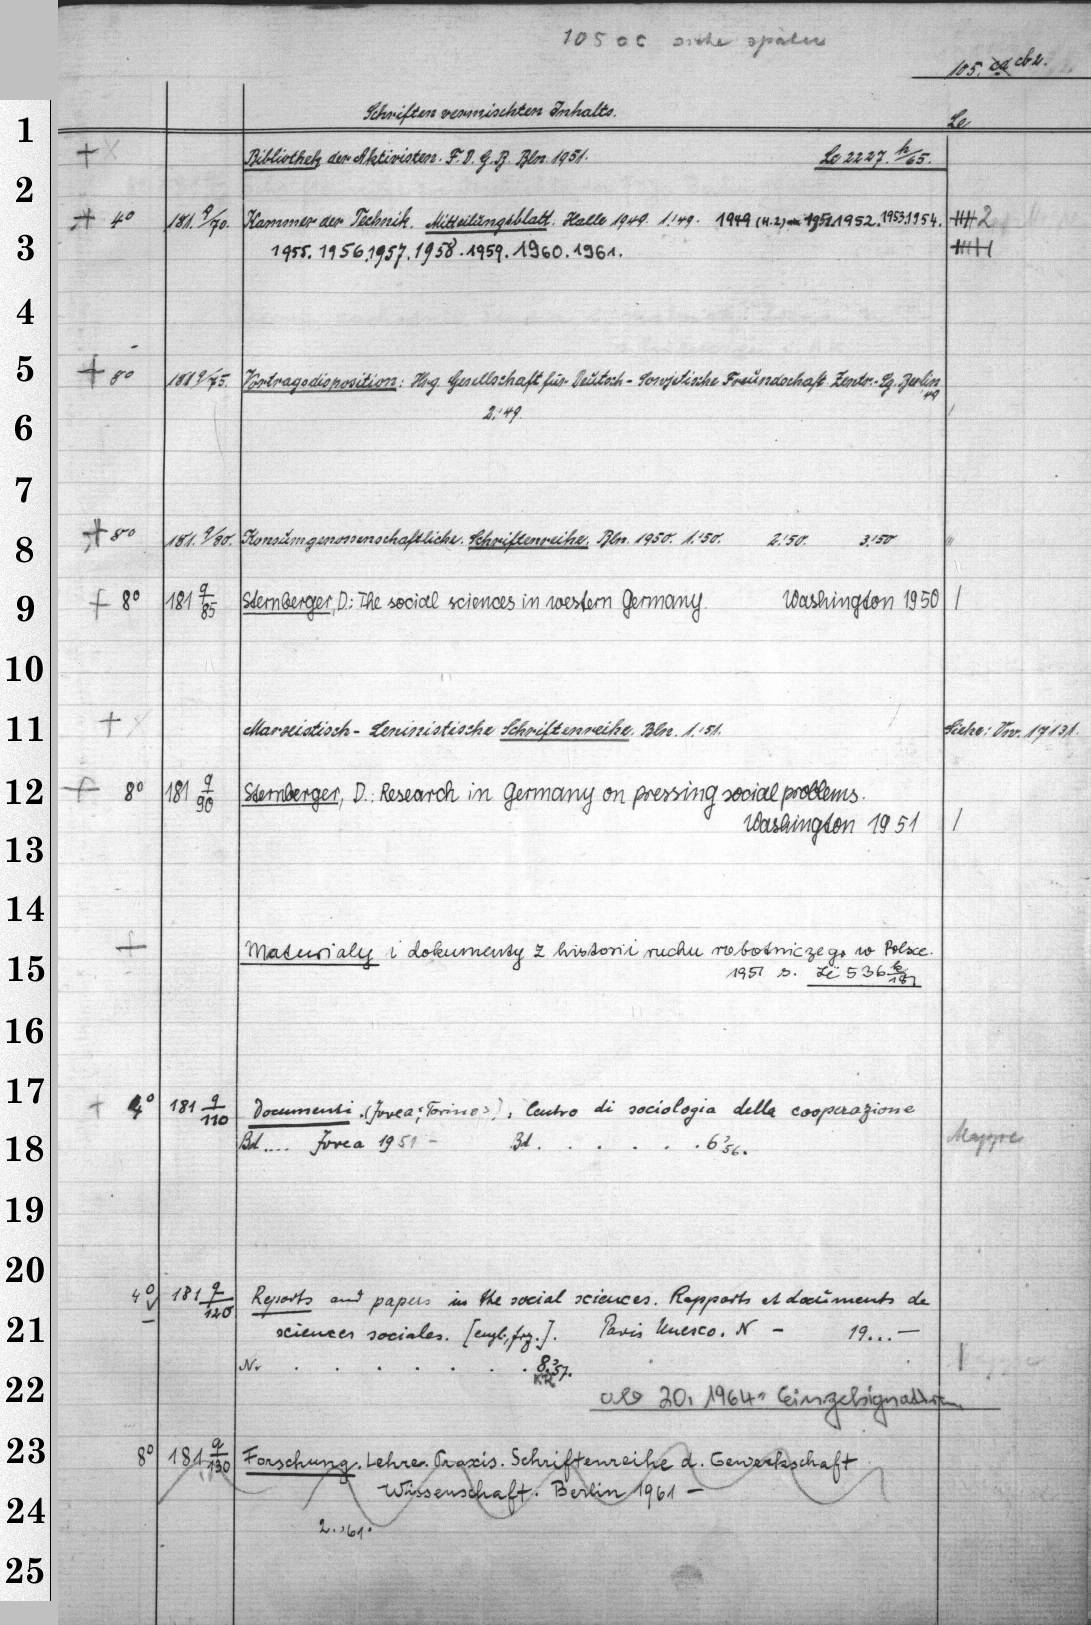 105 cc siehe später
105. ca cb 2.
Schriften vermischten Inhalts. Le
1
+ Bibliothek der Aktivisten. F.D.G.B. Bln. 1951. Le 2227. k/65.
2
+ 4° 181. q/70. Kammer der Technik. Mitteilungsblatt. Halle 1949. 1.'49. 1949 (H.2) 1952. 1952. 1953. 1954. 2
3
1955. 1956. 1957. 1958. 1959. 1960. 1961.
4
5
+ 8° 181 q/75. Vortragsdisposition: Hrsg. Gesellschaft für Deutsch-Sowjetische Freundschaft. Zentr.-Lg. Berlin 49
6
2.'49.
7
8
+ 8° 181. q/80. Konsumgenossenschaftliche. Schriftenreihe. Bln. 1950. 1.'50. 2.'50. 3.'50
9
+ 8° 181 q/85 Sternberger, D.: The social sciences in western Germany. Washington 1950 /
10
11
+ Marxistisch-Leninistische Schriftenreihe. Bln. 1.'51. Siehe: Vw. 17131.
12
+ 8° 181 q/90 Sternberger, D.: Research in Germany on pressing social problems.
Washington 1951 /
13
14
+ Materialy i dokumenty z historii ruchu robotniczego w Polsce.
15
1951 s. Le 536 k/181
16
17
+ 4° 181 q/110 Documenti. (Jvrea; Torino), Centro di sociologia della cooperazione
18
Bd.... Jvrea 1951 - Bd. . . . . . . 6'56. Mappe
19
20
4° 181 q/120 Reports and papers in the social sciences. Rapports et documents de
21
sciences sociales. [engl., frz.]. Paris Unesco. N - 19...-
Nr. . . . . . . . 8.'57. |
22
ab 20. 1964: Einzelsignaturen
23
8° 181 q/130 Forschung. Lehre. Praxis. Schriftenreihe d. Gewerkschaft
Wissenschaft. Berlin 1961 -
24
2.'61.
25